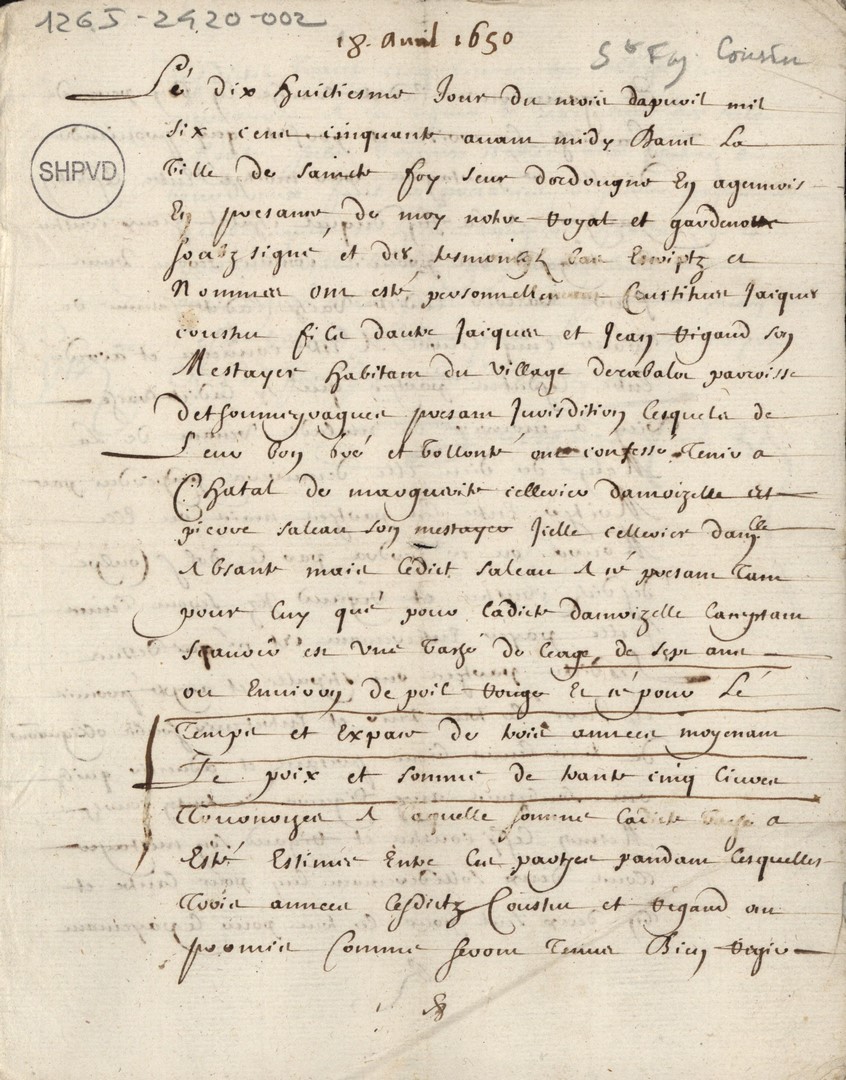 126J-2420-002
18. Auril 1650
Ste Foy Cousin
SHPVD
Lé dix huictiesme Jour du mois dapuril mil
six cens cinquante auant midy Dans La
Ville de saincte foy seur dordougne En agennois
En presance de moy nottre Royal et gardenotte
soubz signé et des tesmoingz bas Escriptz et
Nommes ont esté personnellement Constitues Jacques
coustin filz dautre Jacques et Jean Rigaud son
Mestayer habitant du village parroisse
presant Jurisdition lesquelz de
Leur bon gré et vollonté ont confessé Tenir a
Chatal de marguerite cellerier damoizelle et
pierre saleau son mestayer Jcelle cellerier damlle
Absante mais Ledict saleau A cé presant Tant
pour luy qué pour Ladicte damoizelle
scauoir est vne Vaché de leage, de sept ans
ou Enuiron de poil Rouge Et cé pour Lé
Temps et Expace de trois annees moyenant
Le prix et somme de trante cinq liures
Tournoizes A Laquelle somme Ladicte Vache a
Esté Estimée Entre les partyes pandant lesquelles
Trois annees lesdictz Coustin et Rigaud ont
promis Comme seront Tenus Bien Regir